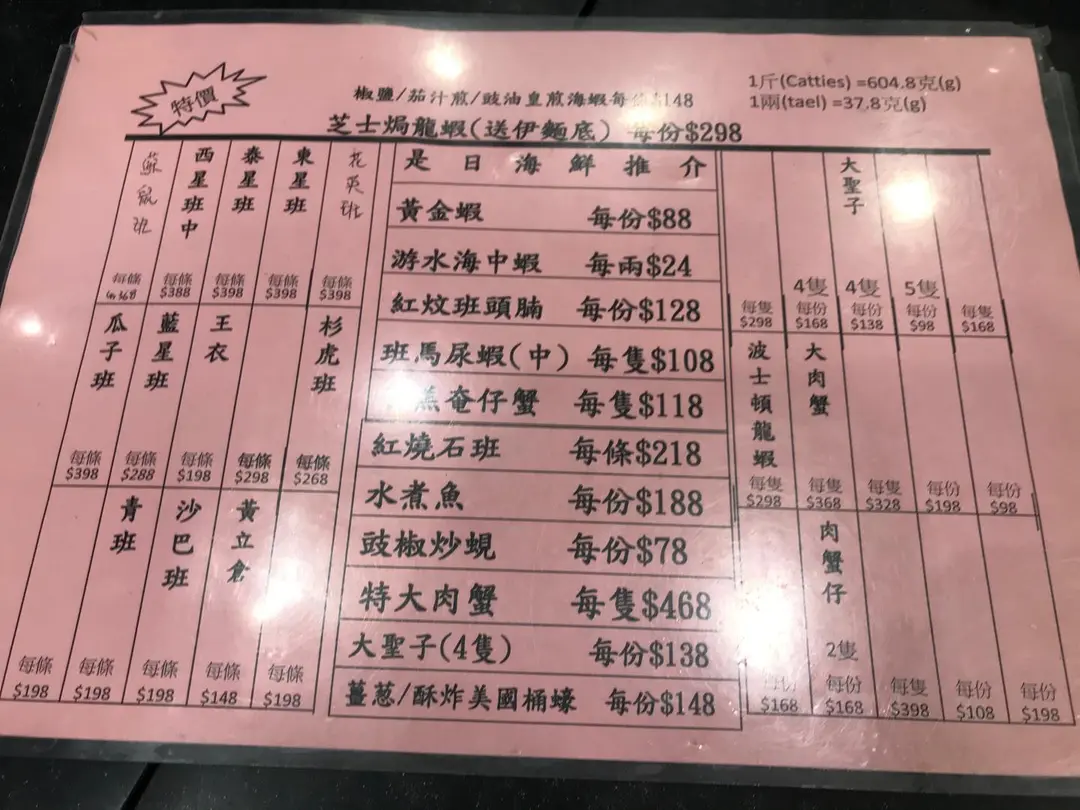 特價
椒鹽/茄汁煎/豉油皇煎海蝦每份$148
1斤(Catties) =604.8克(g)
1兩(tael) =37.8克(g)
芝士焗龍蝦(送伊麵底) 每份$298
蘇鼠班 每條
西星班中 每條 $388
泰星班 每條 $398
東星班 每條 $398
花英班 每條 $398
瓜子班 每條 $398
藍星班 每條 $288
王衣 每條 $198
每條 $298
杉虎班 每條 $268
每條 $198
每條 $198
青班 每條 $198
沙巴班 每條 $148
黃立倉 每條 $198
是日海鮮推介
黃金蝦 每份$88
游水海中蝦 每兩$24
紅炆班頭腩 每份$128
班馬尿蝦(中) 每隻$108
奄仔蟹 每隻$118
紅燒石班 每條$218
水煮魚 每份$188
豉椒炒蜆 每份$78
特大肉蟹 每隻$468
大聖子(4隻) 每份$138
薑葱/酥炸美國桶蠔 每份$148
每隻 $298
4隻 每份 $168
大聖子 4隻 每份 $138
5隻 每份 $98
每隻 $168
波士頓龍蝦 每隻 $298
大肉蟹 每隻 $368
每隻 $328
每份 $198
每份 $98
每份 $168
肉蟹仔 2隻 每份 $168
每隻 $398
每份 $108
每份 $198